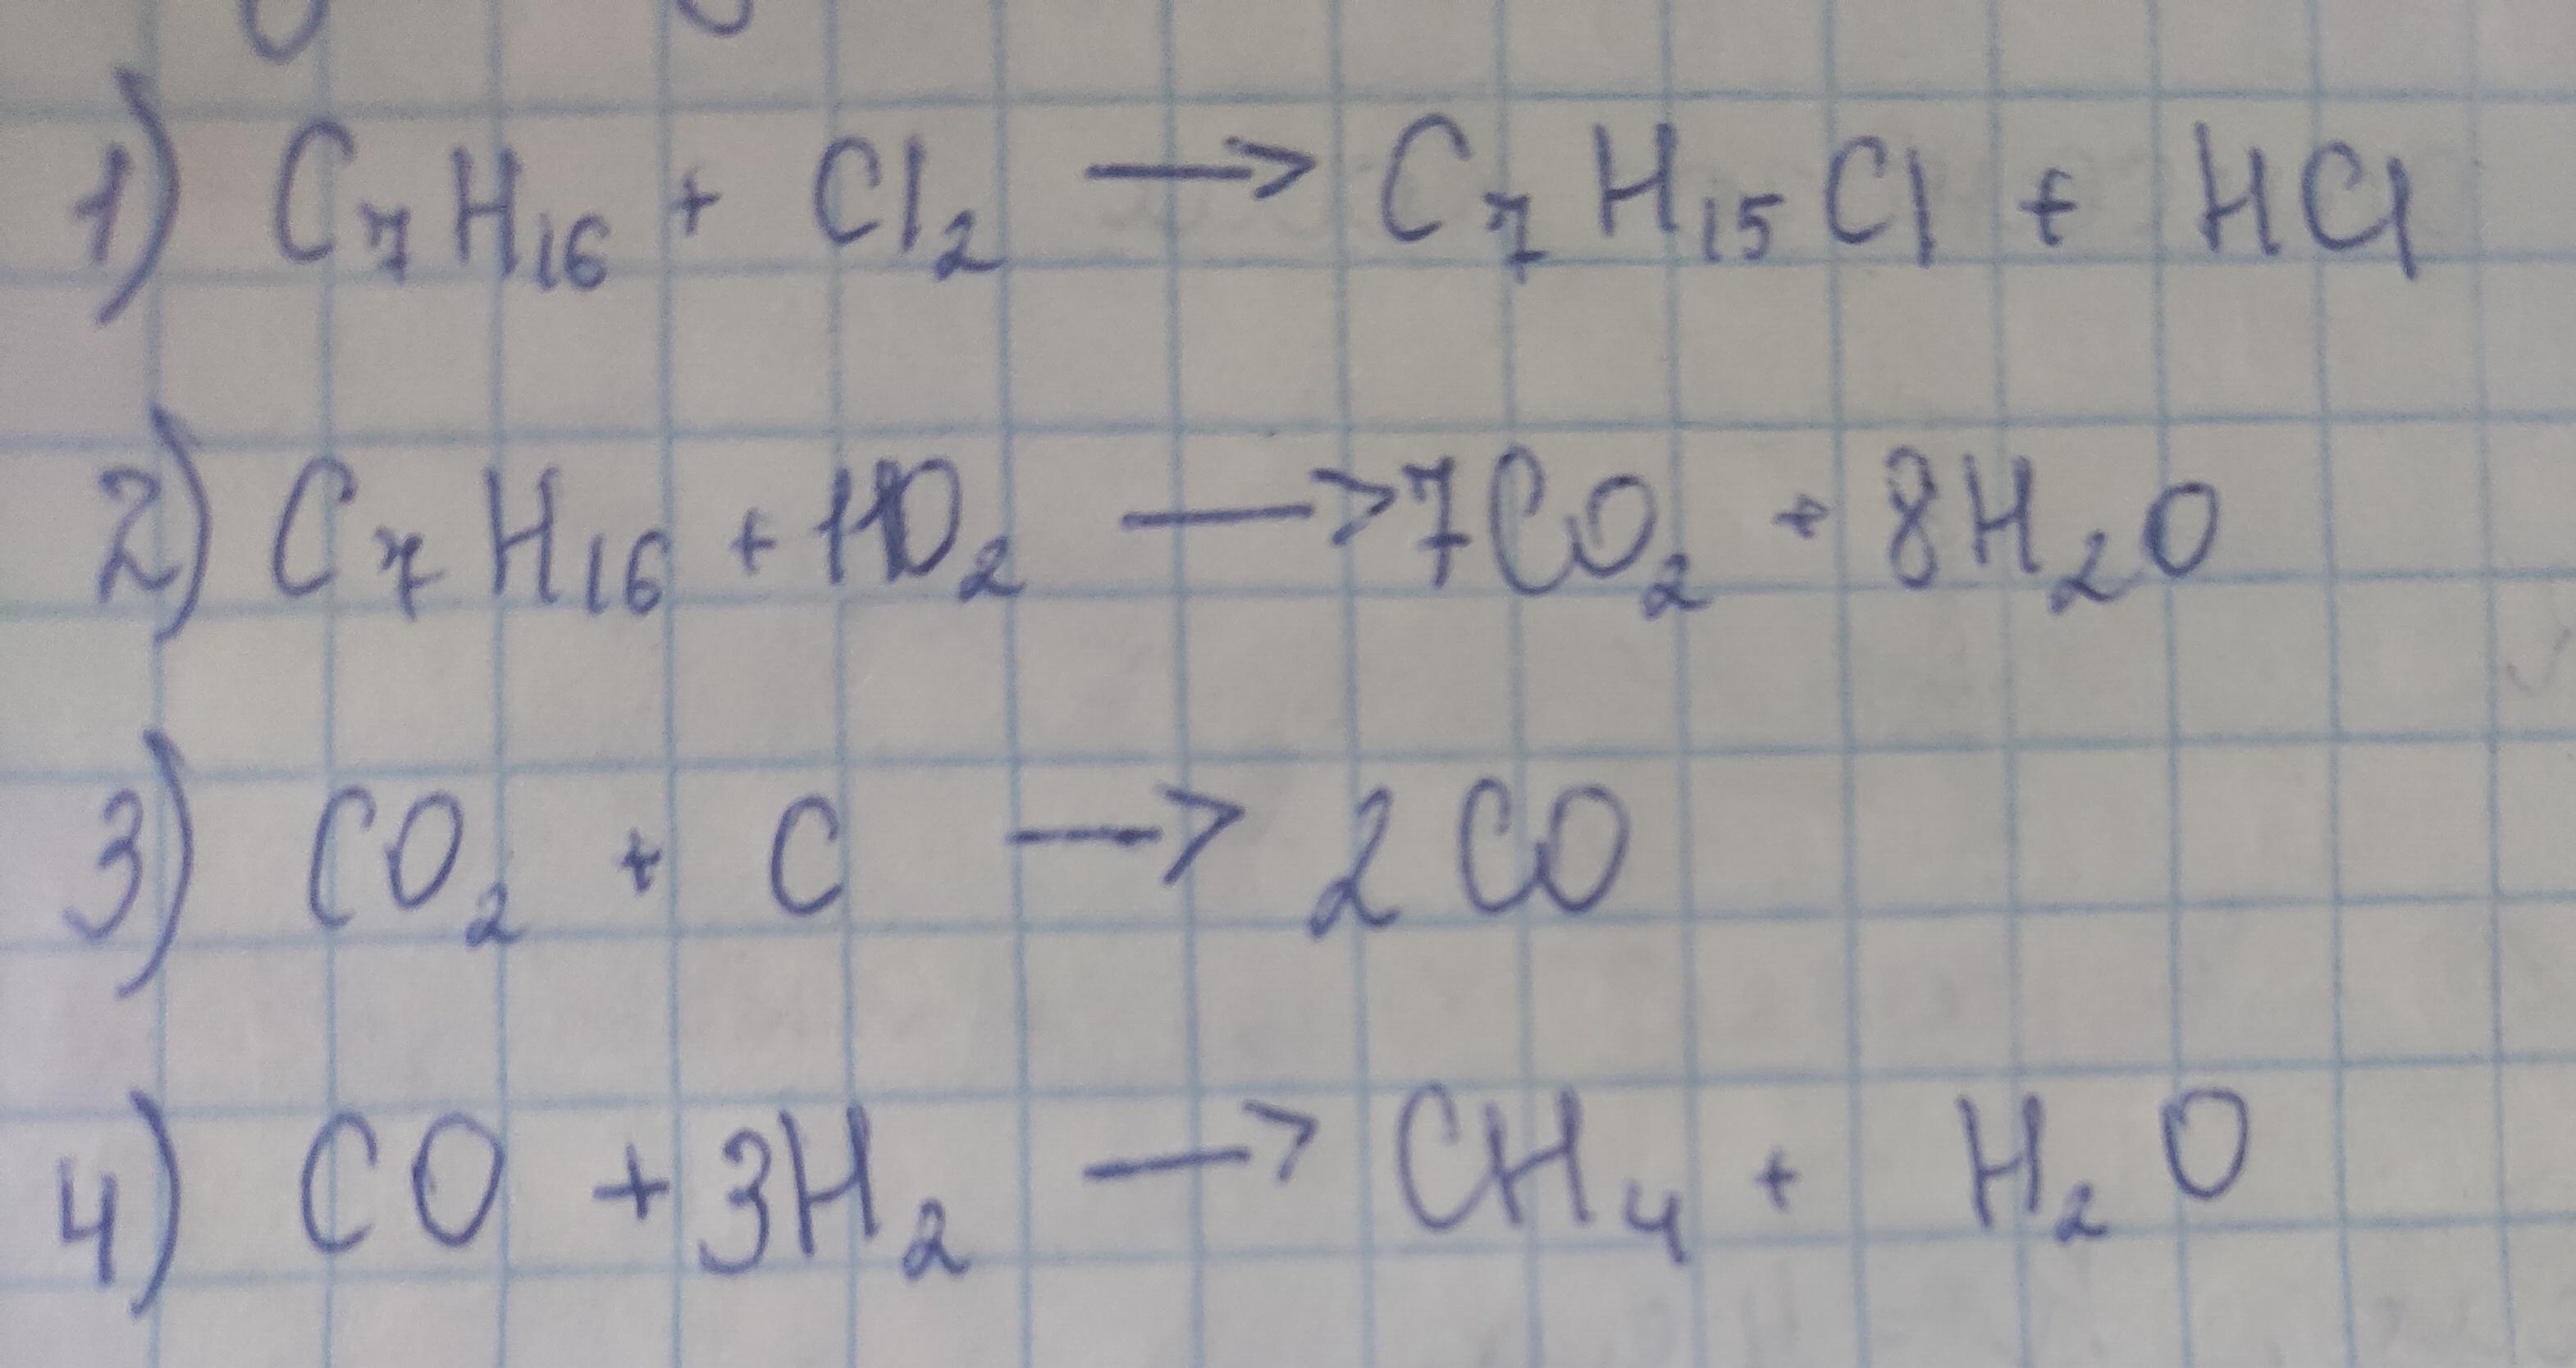 1) C₇H₁₆ + Cl₂ → C₇H₁₅Cl + HCl
2) C₇H₁₆ + 11O₂ → 7CO₂ + 8H₂O
3) CO₂ + C → 2CO
4) CO + 3H₂ → CH₄ + H₂O